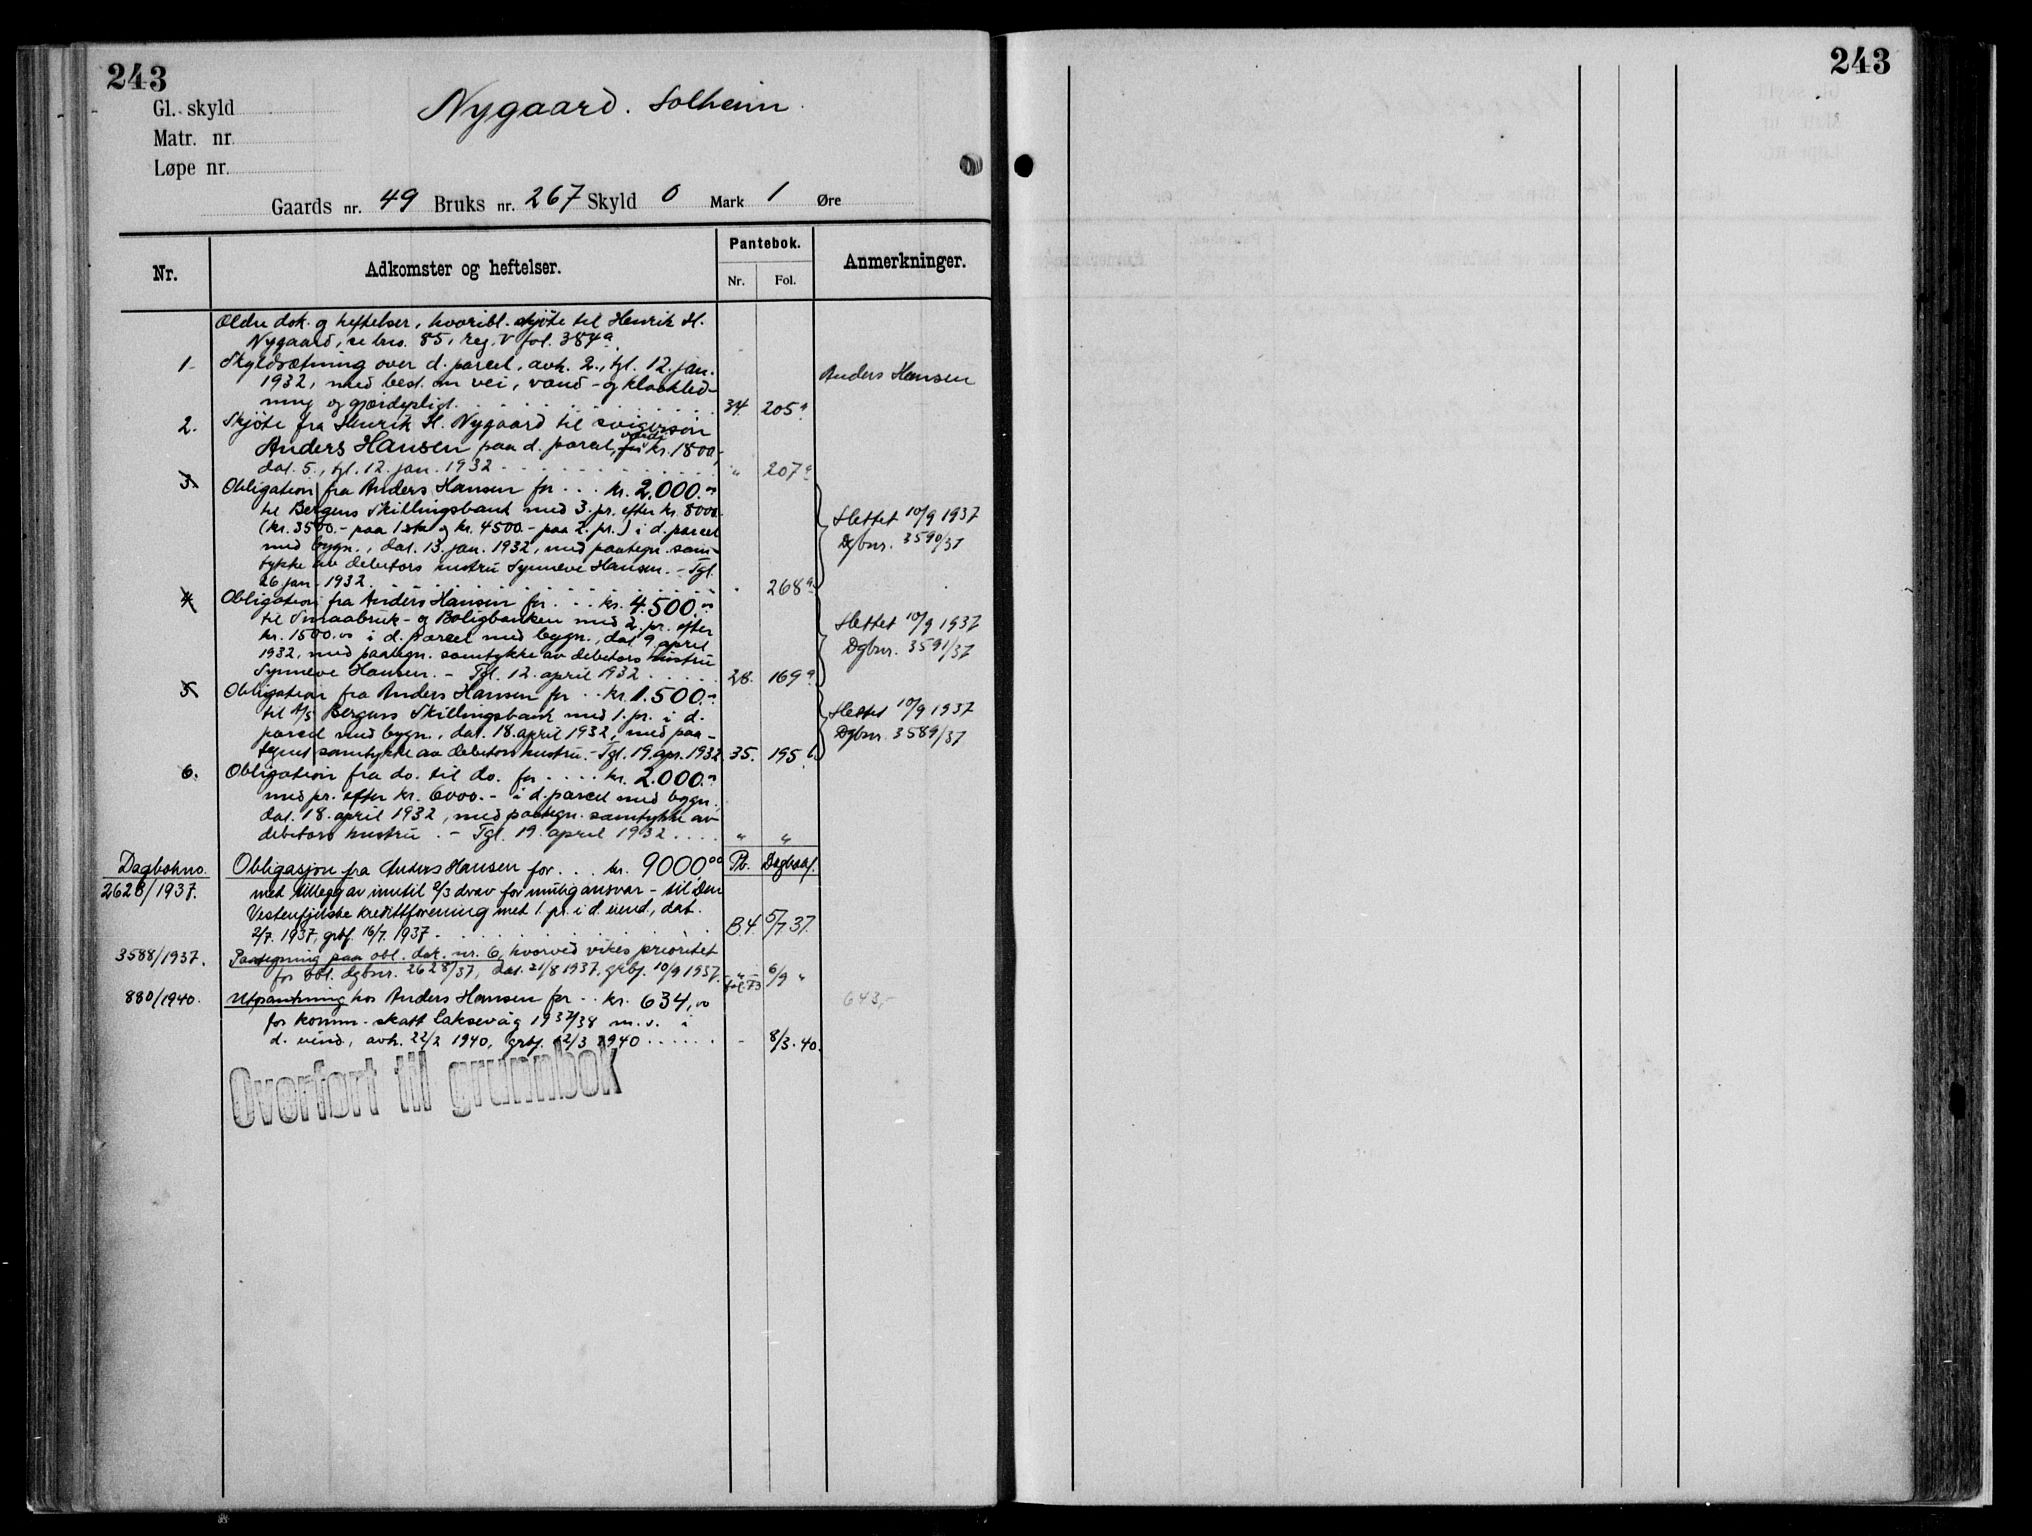 243
243
Gl. skyld
Matr. nr.
Løpe nr.
Nygaard. Solheim.
Gaards nr. 49 Bruks nr. 267 Skyld 0 Mark 1 Øre
Nr. Adkomster og heftelser. Pantebok. Anmerkninger.
Nr. Fol.
Ældre dok. og heftelser, hvoribl. skjøte til Henrik H.
Nygaard, se bno. 85, reg. V fol. 384a.
1. Skyldsætning over d. parcel, avh. 2., tgl. 12. jan.
1932, med best. om vei, vand- og kloakled-
ning og gjerdepligt. 34. 205a
Anders Hansen
2. Skjøte fra Henrik H. Nygaard til svigersøn
Anders Hansen paa d. parcel, værdi kr. 1800,-
dat. 5., tgl. 12. jan. 1932 " 207a
3. Obligation fra Anders Hansen for ... kr. 2.000.00
til Bergens Skillingsbank med 3. pr. efter kr. 8000.
(kr. 3500.- paa 1ste og kr. 4500.- paa 2. pr.) i d. parcel
med bygn., dat. 13. jan. 1932, med paategn. sam-
tykke av debitors hustru Synneve Hansen. - Tgl.
26. jan. 1932 " 268a
Slettet 10/9 1937
Dgbnr. 3590/37
4. Obligation fra Anders Hansen for ... kr. 4.500.00
til Smaabruk- og Boligbanken med 2. pr. efter
kr. 1500.00 i d. parcel med bygn., dat. 9. april
1932, med paategn. samtykke av debitors hustru
Synneve Hansen. - Tgl. 12. april 1932 28. 169a
Slettet 10/9 1937
Dgbnr. 3591/37
5. Obligation fra Anders Hansen for .. kr. 1.500.00
til A/S Bergens Skillingsbank med 1. pr. i d.
parcel med bygn., dat. 18. april 1932, med paa-
tegnet samtykke av debitors hustru. - Tgl. 19. apr. 1932 35. 195.
Slettet 10/9 1937
Dgbnr. 3589/37
6. Obligation fra do. til do. for .... kr. 2.000.00
med pr. efter kr. 6000.- i d. parcel med bygn.,
dat. 18. april 1932, med paategn. samtykke av
debitors hustru. - Tgl. 19. april 1932 .... " "
Dagbokno. Obligasjon fra Anders Hansen for ... kr. 9000.00 Pb. Dagbokf.
2628/1937. med tillegg av inntil 2/3 derav for mulig ansvar - til Den
Vestenfjelske kredittforening med 1. pr. i d. eiend., dat.
2/7. 1937, grbf. 16/7. 1937 B.4. 5/7 37.
3588/1937. Paategning paa obl. dok. nr. 6, hvorved vikes prioritet
for obl. dgbnr. 2628/37, dat. 21/8 1937, grbf. 10/9 1937. " 6/9 "
fol. 73
880/1940. Utpantning hos Anders Hansen for .. kr. 634,00 643,-
for komm. skatt Laksevåg 1937/38 m. v. i
d. eiend., avh. 22/2 1940, grbf. 12/3 1940 ...... - 8/3.40.
Overført til grunnbok